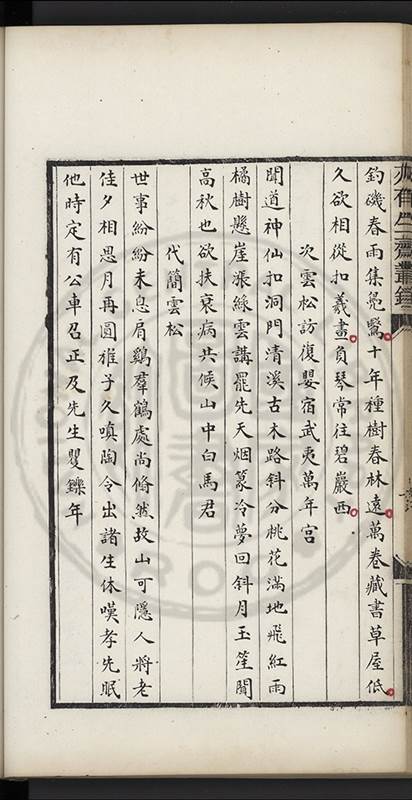 釣磯春雨集鳧鷖十年種樹春林遠萬卷藏書草屋低
久欲相從扣羲畫負琴常往碧巖西
次雲松訪復嬰宿武夷萬年宮
聞道神仙扣洞門清溪古木路斜分桃花滿地飛紅雨
橘樹懸崖漲綵雲講罷先天烟篆冷夢回斜月玉笙聞
高秋也欲扶衰病共候山中白馬君
代簡雲松
世事紛紛未息肩鷄羣鶴處尚翛然故山可隱人將老
佳夕相思月再圓稚子久嗔陶令出諸生休嘆孝先眠
他時定有公車召正及先生矍鑠年